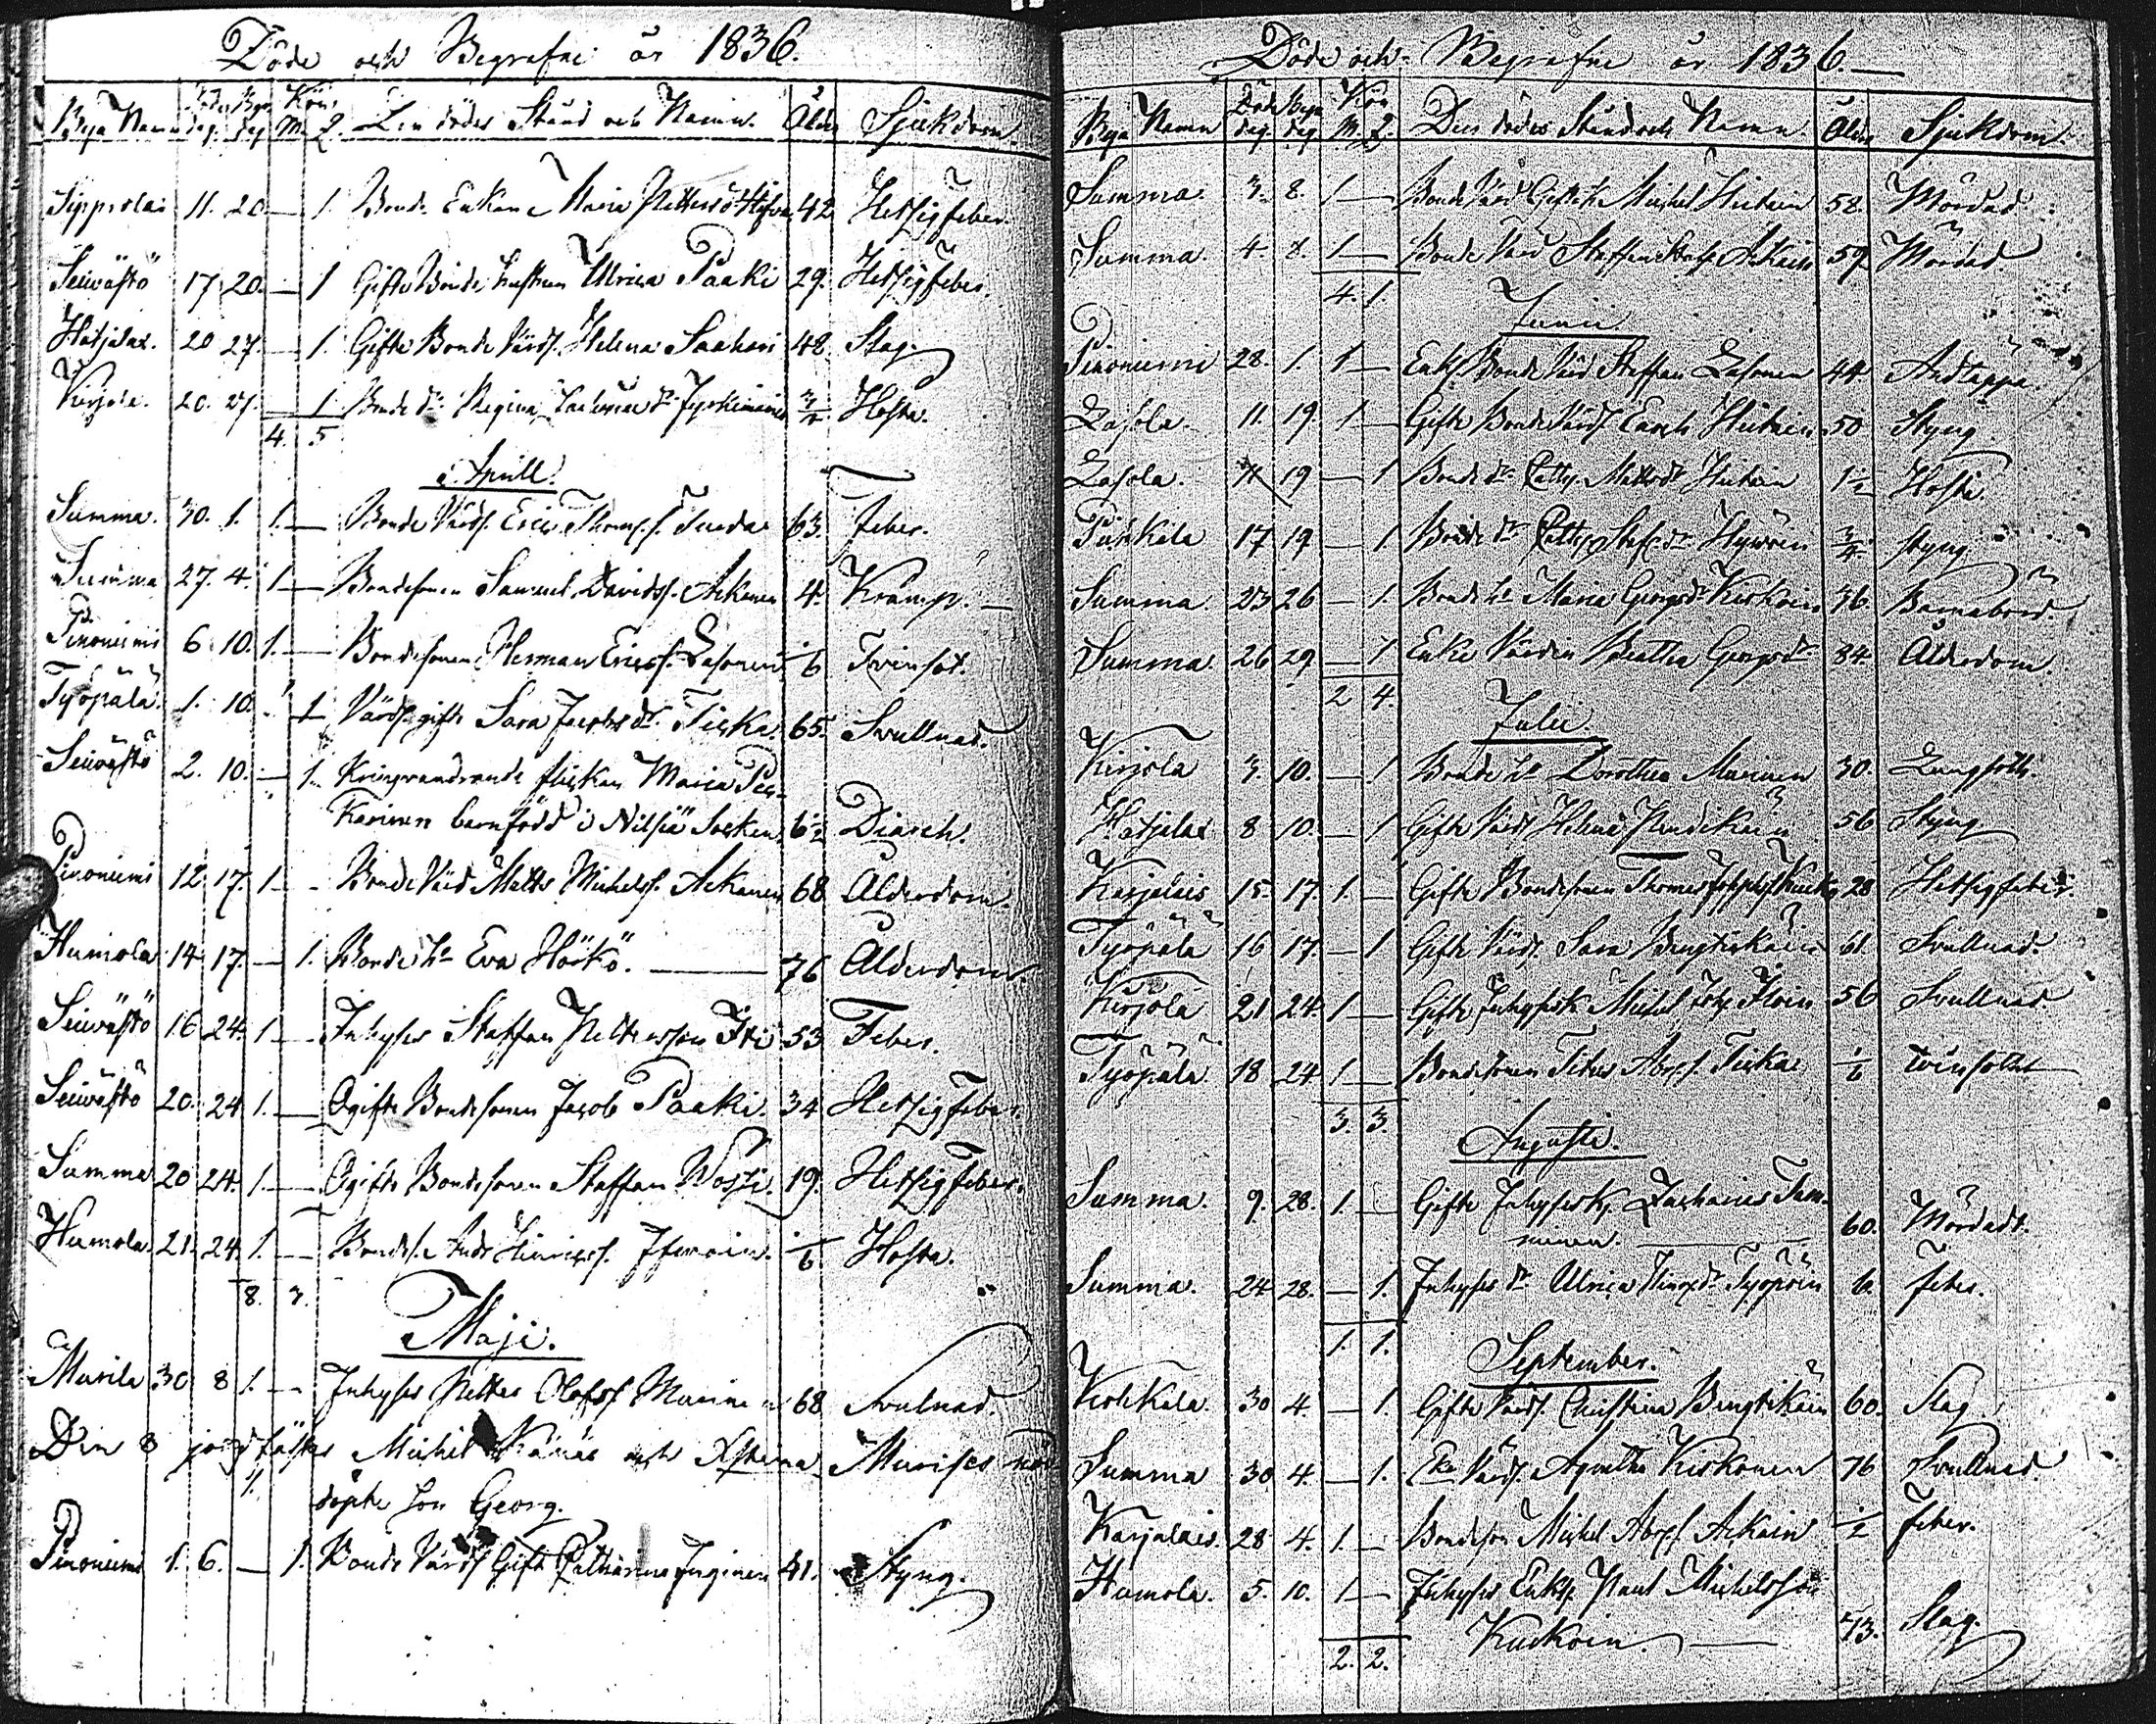 Döde och Begrafne år 1836.
Bya Namn Döde dag. Begr. dag Kön M. Q. Den dödes Stånd och Namn. Ålder Sjukdom.
Sippola 11. 20. — 1. Bonde Enkan Maria 42 Hetsigfeber.
Seivästö 17 20. — 1 Gifte Bonde hustrun Ulrica Paaki 29. Hetsigfeber.
Hatjalax. 20 27. — 1. Gifte Bonde Värds. Helena Saahari 48. Slag.
Kirjola. 20. 27. — 1. Bonde dr Regina Hosta.
4. 5
Aprill.
Summa. 30. 1. 1. — Bonde Värds. Eric Thoms. s. Tueda 63. Feber.
Summa 27. 4. 1 — Bondesonen Samuel Davidss. Ackanen 4. Kramp. —
Pinoniemi 6. 10. 1. — Bondesonen Herman Ericss. Lasonen 6 Tvinsot.
Työpälä. 1. 10. - 1 Värds. gifte Sara Jacobsdr. Tiska. 65. Svullnad.
Seivästö 2. 10. — 1. Kringvandrande flickan Maria Pes-
karinen barnfödd i Nilsiä Socken 6½ Diarch.
Pinoniemi 12. 17. 1 - Bonde Värd Matts Michelss. Ackanen 68 Ålderdom.
Humola 14 17. — 1. Bonde hu Eva Hörkö. — 76 Ålderdom.
Seivästö 16 24. 1 — Inhyses Staffan Pettersson Iti 53 Feber.
Seivästö 20. 24 1. — Ogifte Bondesonen Jacob Paaki. 34 Hetsigfeber.
Summa 20 24. 1. — Ogifte Bondesonen Staffan Wosti. 19. Hetsigfeber.
Humola. 21. 24. 1. — Bondes. And. Hinricss. 1/6 Hosta.
8. 3.
Maji.
Murila 30 8 1. — Inhyses Petter Olofss. Murinen 68 Svulnad.
Den 8 jordfästes Michel och Murises
1. döpte son Georg.
Pinoniemi 1. 6. — 1. Bonde Värds Gift Catharina Inginen 41. Styng.
Döde och Begrafne år 1836. —
Bya Namn Döde dag. Begr. dag Kön M. Q. Den dödes Stånd och Namn. Ålder Sjukdom.
Summa. 3. 8. 1 — Bonde Värd Gifte Michel Hietain 58. Mördad.
Summa. 4. 8. 1 — Bonde Värd Staffan Ackain 59 Mördad.
4. 1.
Junii.
Pinoniemi 28. 1. 1 — Enkl. Bonde Värd Staffan Lasonen 44. Andtäppa.
Lasola. 11. 19. 1 — Gifte Bonde Värds Enoch Hietain 50 Styng
Lasola. 11 19 — 1 Bonde dr Cathr. Mattsdr Hietain 1½ Hosta
Pihkala 17 19 — 1. Bonde dr Cathr. Stafsdr 3/4 styng
Summa. 23 26 — 1. Bonde hu Maria Georgsdr Kirkoin 36. Barnabörd.
Summa 26 29 — 1 Enke Värden Beatha Georgsdr 84 Ålderdom
2 4.
Julii.
Kirjola 3. 10. — 1 Bonde hu Dorothea Murinen 30. Lungsoth.
Hatjalax 8 10. — 1 Gifte Värds Helena Pendikäin 56 Styng
Karjalais 15. 17. 1. — Gifte Bondesonen Thomas Josephs. 28 Hetsigfeber.
Työpälä 16 17. — 1 Gifte Värds. Sara Bengtikäin 61. Svullnad.
Kirjola 21 24 1 — Gifte Inhyses k. Michel Joh. 56 Svullnad
Työpälä. 18 24 1 — Bondesonen Titus Abr. s. Tiska 1/6 tvinsothet
3. 3.
Augusti.
Summa. 9. 28. 1. — Gifte Inhyses k. Zacharias Tam-
minen. — 60. Mördadt.
Summa. 24 28. — 1. Inhyses dr Ulrica Hinr. dr 6. feber.
1. 1.
September.
Kirkkala 30 4. — 1. Gifte Värds. Christina Bengtikäin 60. Slag
Summa 30 4. — 1. Eka Värds. Agnetha Kirkonen 76 Svullnad.
Karjalais. 28 4. 1. — Bondeson Michel Abr. s. Ackain ½ Feber.
Humola. 5. 10. 1 — Inhyses Enkl. Paul Michelsson
Kuckoin. — 73. Slag.
2. 2.